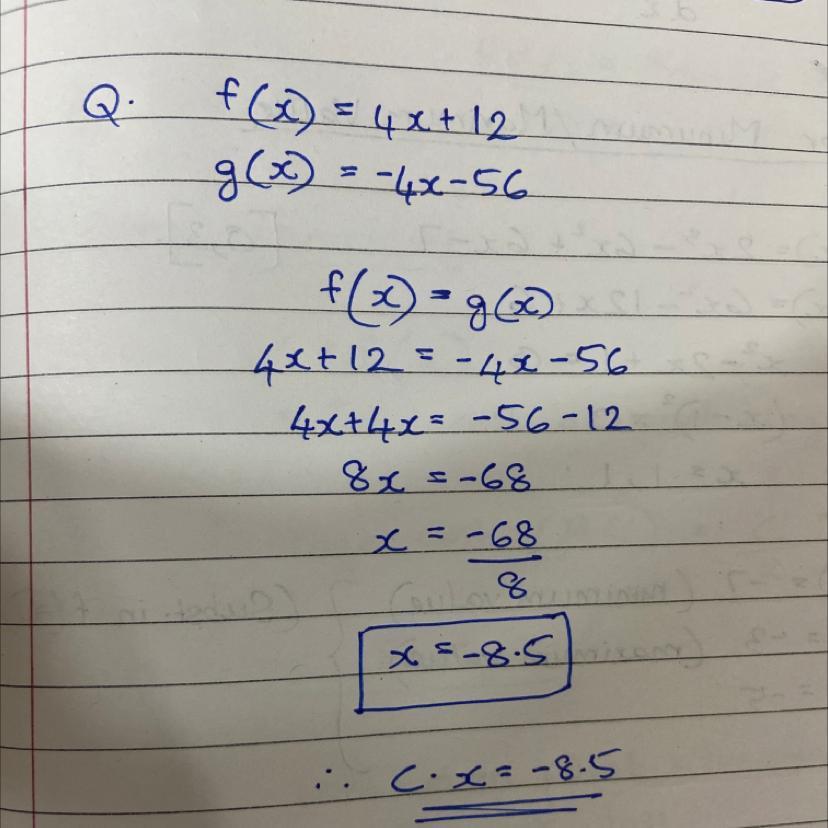 Q. f(x) = 4x+12
g(x) = -4x-56
f(x) = g(x)
4x+12 = -4x-56
4x+4x = -56-12
8x = -68
x = -68/8
x = -8.5
∴ C. x = -8.5